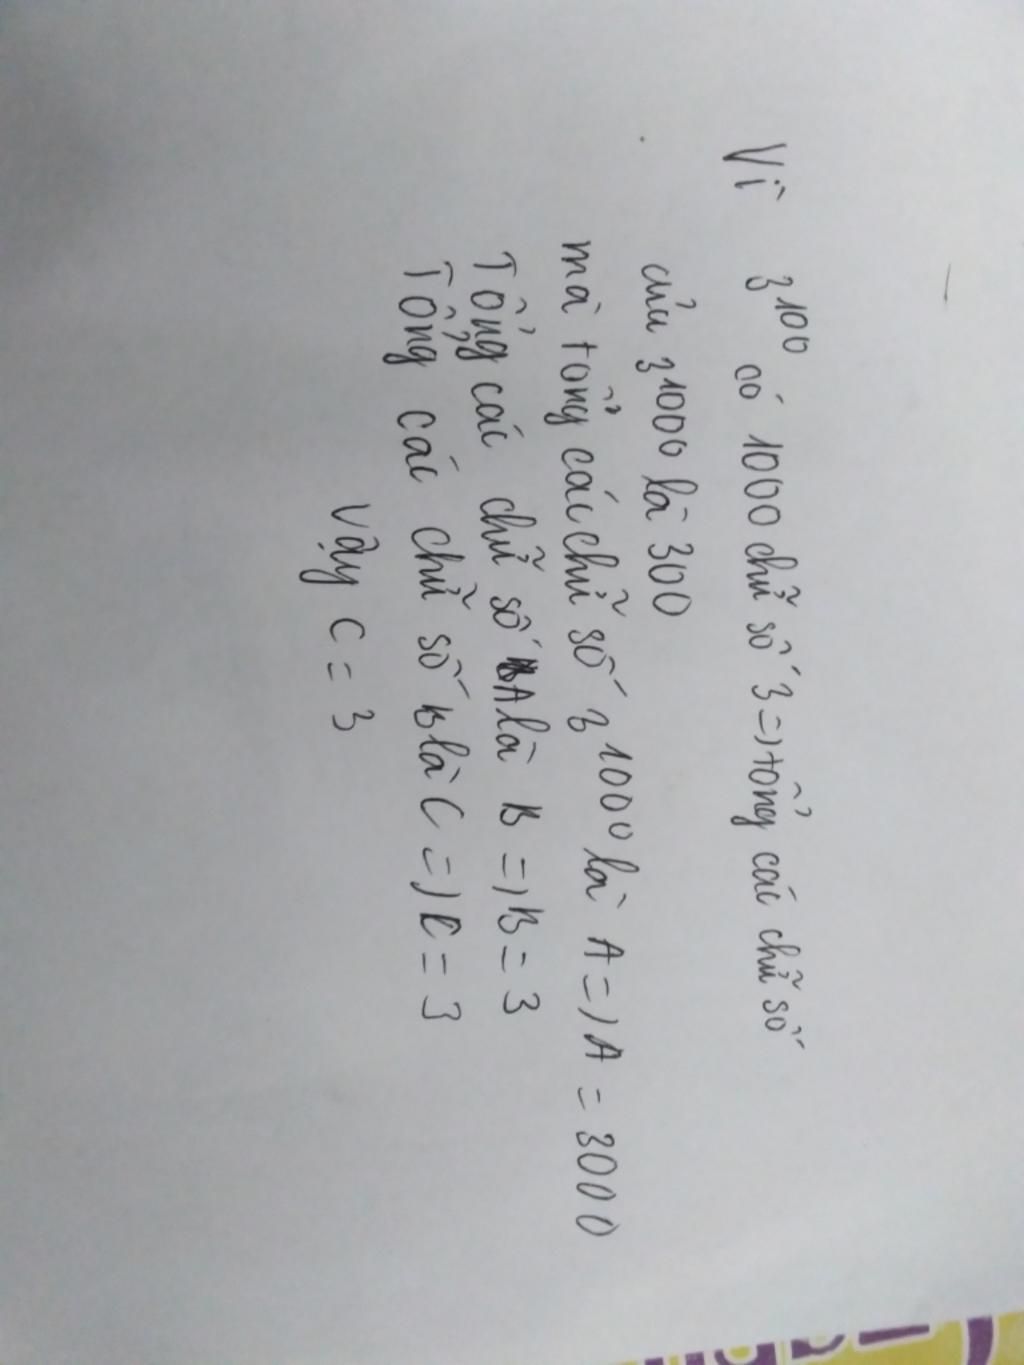 Vì 3¹⁰⁰ có 1000 chữ số 3 => tổng các chữ số
của 3¹⁰⁰⁰ là 300
mà tổng các chữ số 3¹⁰⁰⁰ là A => A = 3000
Tổng các chữ số A là B => B = 3
Tổng các chữ số B là C => C = 3
Vậy C = 3